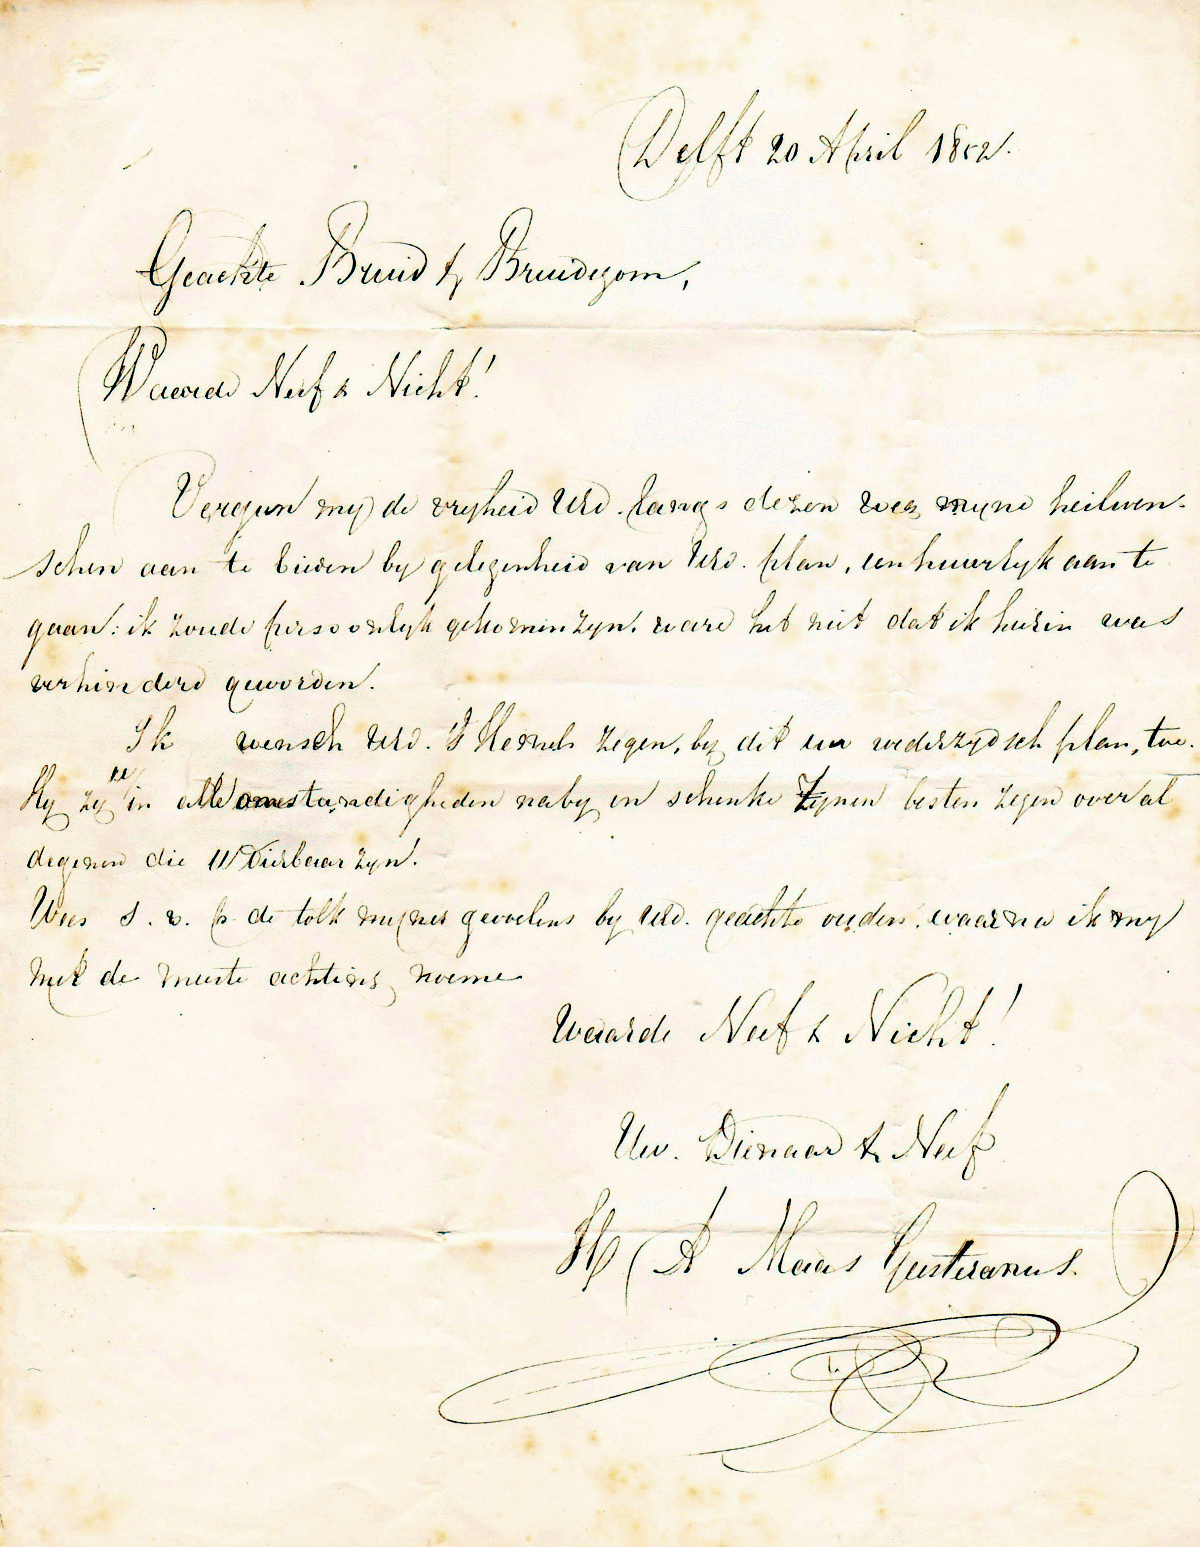 Delft 20 April 1852.
Geachte Bruid & Bruidegom,
Waarde Neef & Nicht!
Vergun my de vryheid UEd. langs dezen weg myne heilwen-
schen aan te bieden by gelegenheid van UEd. plan, een huwelyk aan te
gaan: ik zoude persoonlyk gekomen zyn, ware het niet dat ik hierin was
verhinderd geworden.
Ik wensch UEd. 's Hemels zegen, by dit uw wederzydsch plan, toe.
Hy zy U in alle omstandigheden naby en schenke Zynen besten zegen over al
degenen die U dierbaar zyn.
Wees s. v. p. de tolk myner gevoelens by UEd. geachte ouders, waarna ik my
met de meeste achting noeme
Waarde Neef & Nicht!
Uw. Dienaar & Neef
H A Maas Geesteranus.